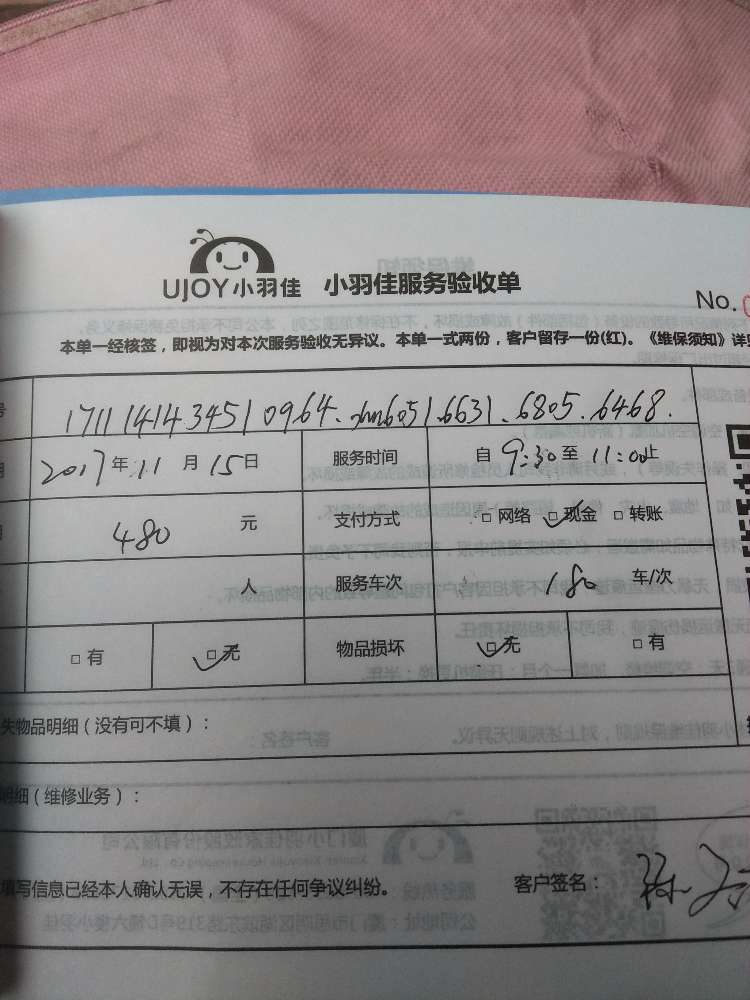 UJOY小羽佳 小羽佳服务验收单
No.
本单一经核签，即视为对本次服务验收无异议。本单一式两份，客户留存一份(红)。《维保须知》详见
号 1711141434510964. 6051 6631.6805.6468.
期 2017年11月15日 服务时间 自9:30至11:00止
480 元 支付方式 □网络 □现金 □转账
人 服务车次 180 车/次
□有 □无 物品损坏 □无 □有
失物品明细（没有可不填）：
明细（维修业务）：
填写信息已经本人确认无误，不存在任何争议纠纷。 客户签名：